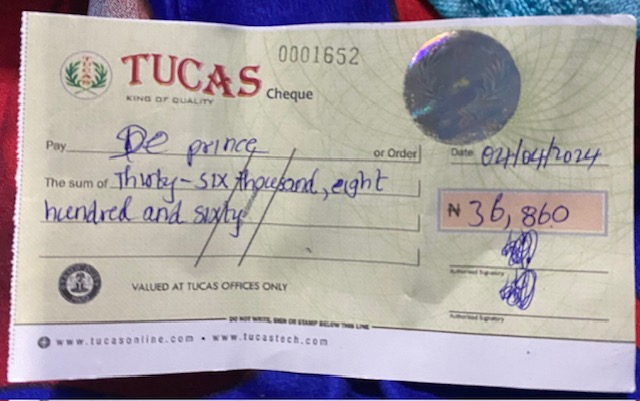 0001652
TUCAS
KING OF QUALITY
Cheque
Pay De prince or Order
Date 04/04/2024
The sum of Thirty-six thousand, eight
hundred and sixty
₦ 36,860
Authorised Signatory
Authorised Signatory
VALUED AT TUCAS OFFICES ONLY
DO NOT WRITE, SIGN OR STAMP BELOW THIS LINE
www.tucasonline.com • www.tucastech.com